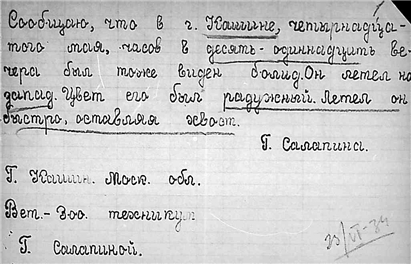 Сообщаю, что в г. Кашине, четырнадца-
того мая, часов в десять-одиннадцить ве-
чера был тоже виден болид. Он летел на
запад. Цвет его был радужный. Летел он
быстро, оставляя хвост.
Г. Салапина.
Г. Кашин. Моск. обл.
Вет.-Зоо. техникум
Г. Салапиной.
23/VI-34